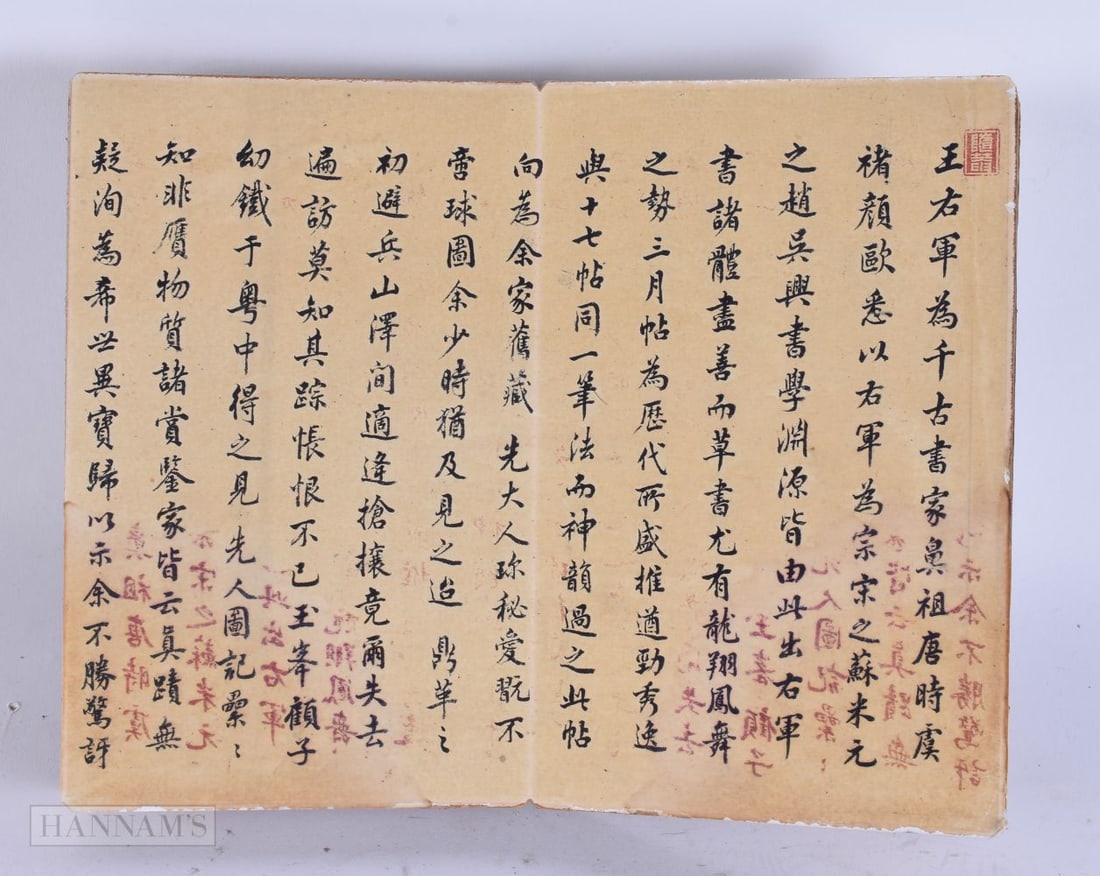 王右軍為千古書家鼻祖唐時虞
褚顏歐悉以右軍為宗宋之蘇米元
之趙吳興書學淵源皆由此出右軍
書諸體盡善而草書尤有龍翔鳳舞
之勢三月帖為歷代所盛推遒勁秀逸
與十七帖同一筆法而神韻過之此帖
向為余家舊藏 先大人珎秘愛翫不
啻球圖余少時猶及見之迨 鼎革之
初避兵山澤間適逢搶攘竟爾失去
遍訪莫知其踪悵恨不已玉峯顧子
幼鐵于粤中得之見 先人圖記纍〻
知非贗物質諸賞鑒家皆云真蹟無
疑洵為希世異寶歸以示余不勝驚訝
HANNAM'S